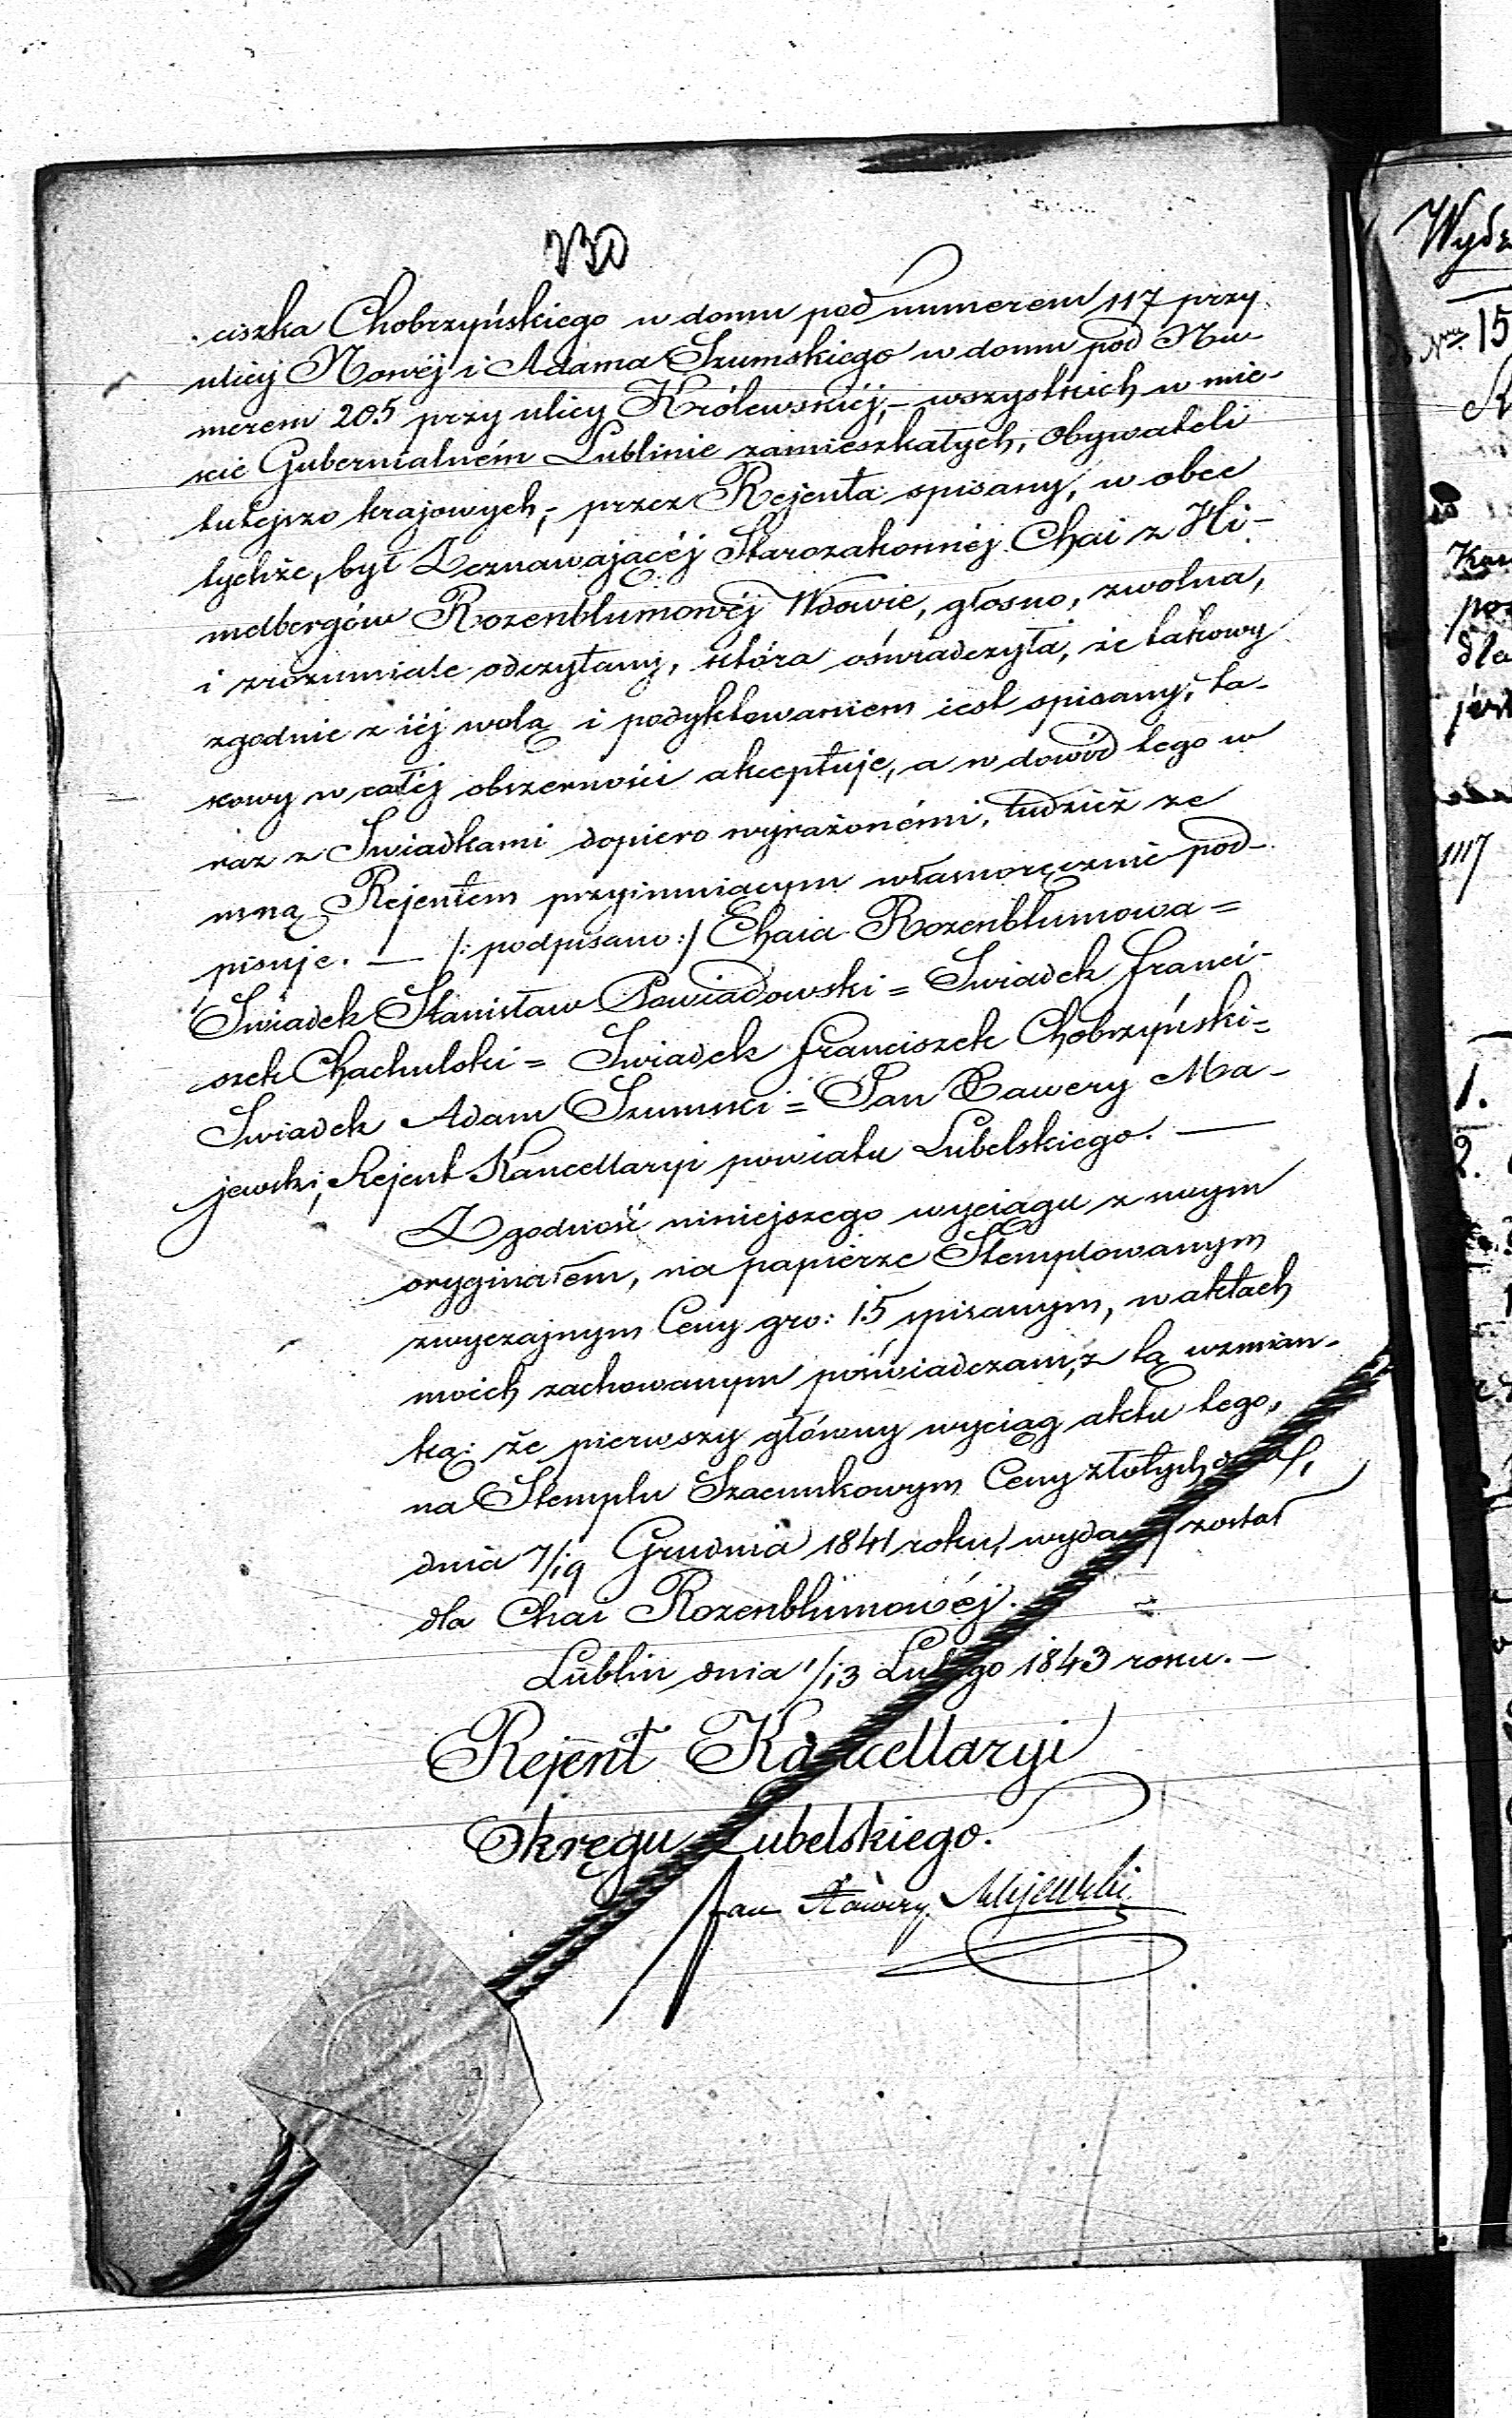 230
ciszka Chobrzyńskiego w domu pod numerem 117 przy
ulicy Nowéj i Adama Szumskiego w domu pod Nu-
merem 205 przy ulicy Królewskiéj,- wszystkich w mie-
scie Gubernialném Lublinie zamieszkałych, Obywateli
tutejszo krajowych,- przez Rejenta spisany, w obec
tychże, był Zeznawającéj Starozakonnéj Chai z Hi-
melbergów Rozenblumowéj Wdowie, głosno, zwolna,
i zrozumiale odczytany, która oświadczyła, że takowy
zgodnie z iéj wolą i podyktowaniem iest spisany, ta-
kowy w całéj obszerności akceptuje, a w dowód tego w
raz z Swiadkami dopiero wyrażonémi, tudzież ze
mną Rejentem przyimuiącym własnoręcznie pod-
pisuje. — /: podpisano :/ Chaia Rozenblumowa =
Swiadek Stanisław Powiadowski = Swiadek Franci-
szek Chachulski = Swiadek Franciszek Chobrzyński =
Swiadek Adam Szumski = Jan Xawery Ma-
jewski, Rejent Kancellaryi powiatu Lubelskiego. —
Zgodność niniejszego wyciągu z swym
oryginałem, na papierze Stemplowanym
zwyczajnym Ceny gro: 15 spisanym, w aktach
moich zachowanym poświadczam, z tą wzmian-
ką: że pierwszy główny wyciąg aktu tego,
na Stemplu Szacunkowym Ceny złotych
dnia 7/19 Grudnia 1841 roku, wydany został
dla Chai Rozenblumowéj.
Lublin dnia 1/13 Lutego 1843 roku. —
Rejent Kancellaryi
Okręgu Lubelskiego.
Jan Xawery Majewski
Nru. 15
1117
1.
2.